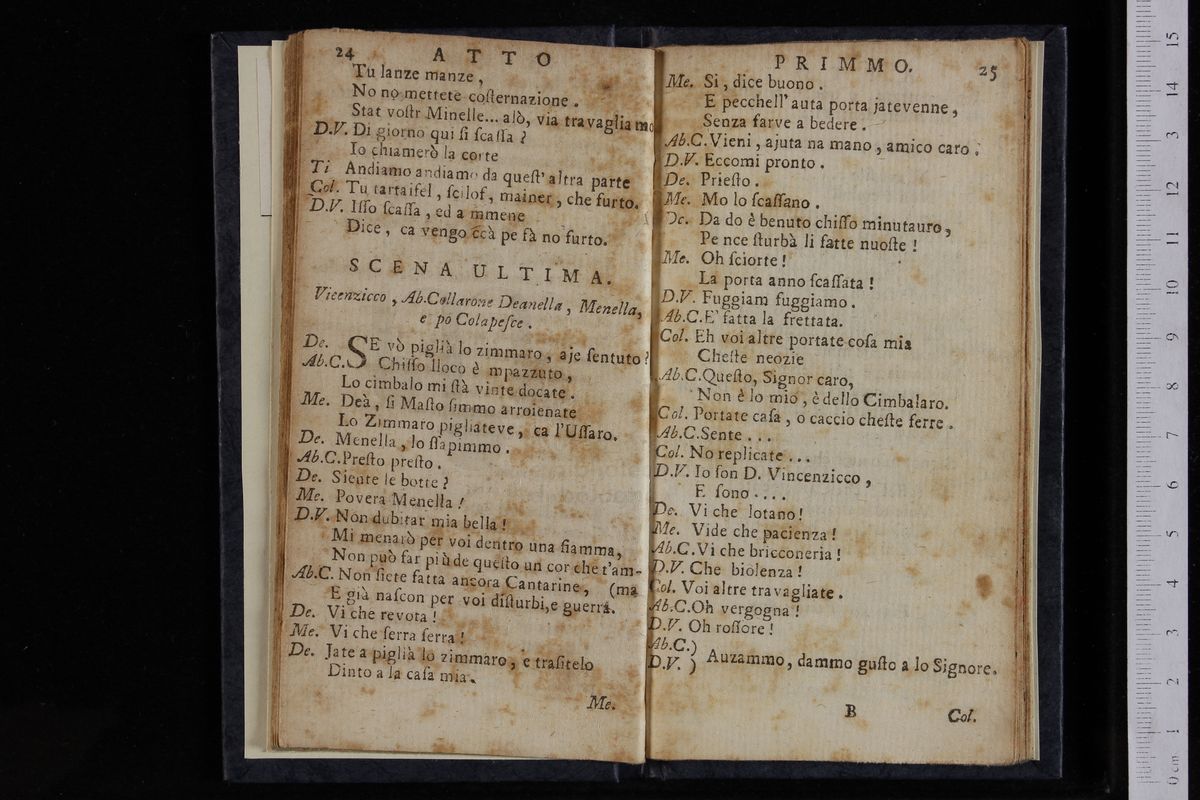 24 ATTO
Tu lanze manze,
No no mettete coſternazione.
Stat voſtr Minelle... alò, via travagliamo
D.V. Di giorno qui ſi ſcaſſa?
Io chiamerò la corte
Ti Andiamo andiamo da queſt' altra parte
Col. Tu tartaifel, ſcilof, mainer, che furto.
D.V. Iſſo ſcaſſa, ed a mmene
Dice, ca vengo ccà pe fà no furto.
SCENA ULTIMA.
Vicenzicco, Ab.Collarone Deanella, Menella,
e po Colapeſce.
De. SE vò piglià lo zimmaro, aje ſentuto?
Ab.C. Chiſſo lloco è mpazzuto,
Lo cimbalo mi ſtà vinte docate.
Me. Deà, ſi Maſto ſimmo arroienate
Lo Zimmaro pigliateve, ca l'Uſſaro.
De. Menella, lo ſſapimmo.
Ab.C. Preſto preſto.
De. Siente le botte?
Me. Povera Menella!
D.V. Non dubitar mia bella!
Mi menarò per voi dentro una fiamma,
Non può far più de queſto un cor che t'am-
Ab.C. Non ſiete fatta ancora Cantarine, (ma
E già naſcon per voi diſturbi, e guerra.
De. Vi che revota!
Me. Vi che ſerra ſerra!
De. Jate a piglià lo zimmaro, e traſitelo
Dinto a la caſa mia.
Me.
PRIMMO. 25
Me. Si, dice buono.
E pecchell' auta porta jatevenne,
Senza farve a bedere.
Ab.C. Vieni, ajuta na mano, amico caro:
D.V. Eccomi pronto.
De. Prieſto.
Me. Mo lo ſcaſſano.
De. Da do è benuto chiſſo minutauro,
Pe nce ſturbà li fatte nuoſte!
Me. Oh ſciorte!
La porta anno ſcaſſata!
D.V. Fuggiam fuggiamo.
Ab.C. E' fatta la frettata.
Col. Eh voi altre portate coſa mia
Cheſte neozie
Ab.C. Queſto, Signor caro,
Non è lo mio, è dello Cimbalaro.
Col. Portate caſa, o caccio cheſte ferre.
Ab.C. Sente...
Col. No replicate...
D.V. Io ſon D. Vincenzicco,
E ſono....
De. Vi che lotano!
Me. Vide che pacienza!
Ab.C. Vi che bricconeria!
D.V. Che biolenza!
Col. Voi altre travagliate.
Ab.C. Oh vergogna!
D.V. Oh roſſore!
Ab.C.)
D.V. ) Auzammo, dammo guſto a lo Signore.
B Col.
0 cm 1 2 3 4 5 6 7 8 9 10 11 12 13 14 15